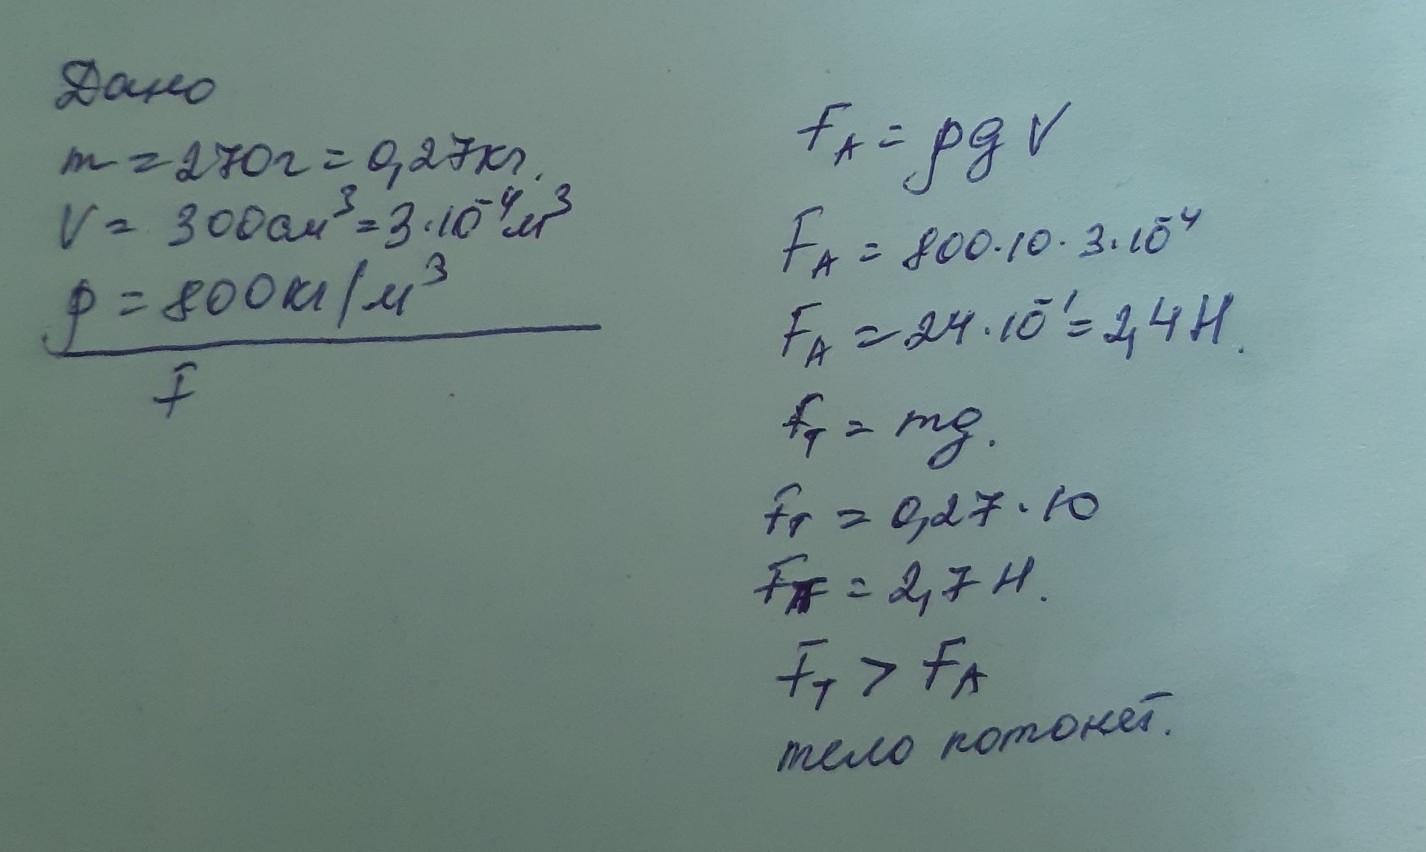 Дано
m = 270г = 0,27кг.
V = 300см³ = 3·10⁻⁴м³
ρ = 800кг/м³
F
F_A = ρgV
F_A = 800·10·3·10⁻⁴
F_A = 24·10⁻¹ = 2,4 Н.
F_т = mg.
F_т = 0,27·10
F_т = 2,7 Н.
F_т > F_A
тело потонет.